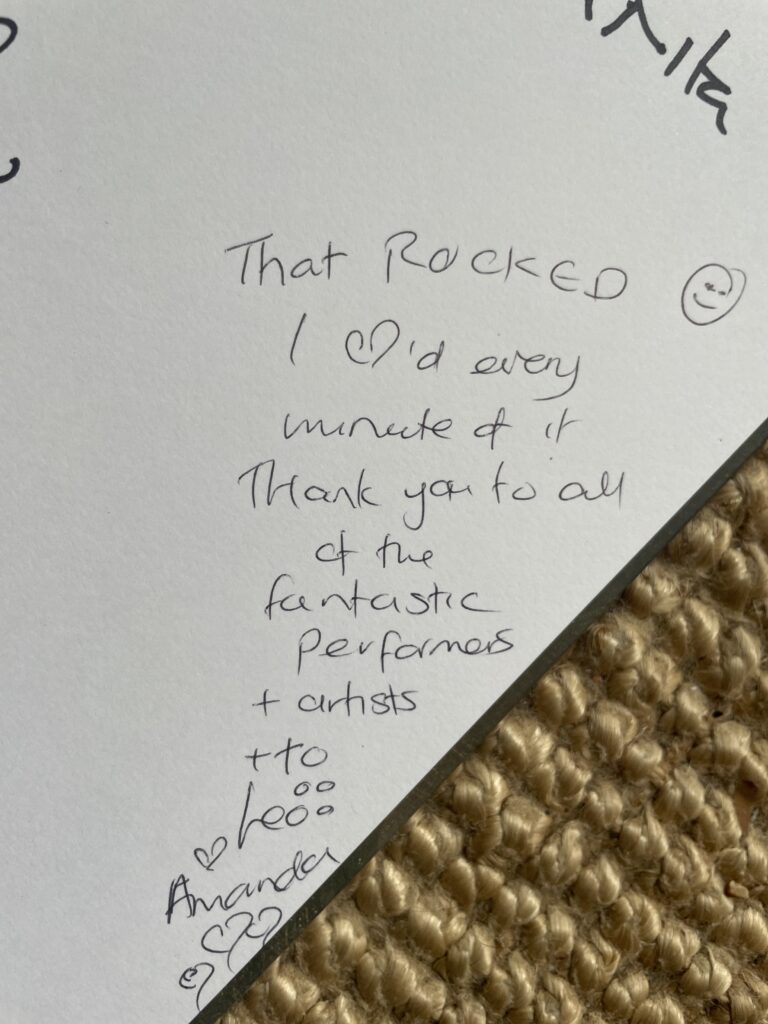 That ROCKED
I ♡'d every
minute of it
Thank you to all
of the
fantastic
performers
+ artists
+ to
Leo
Amanda